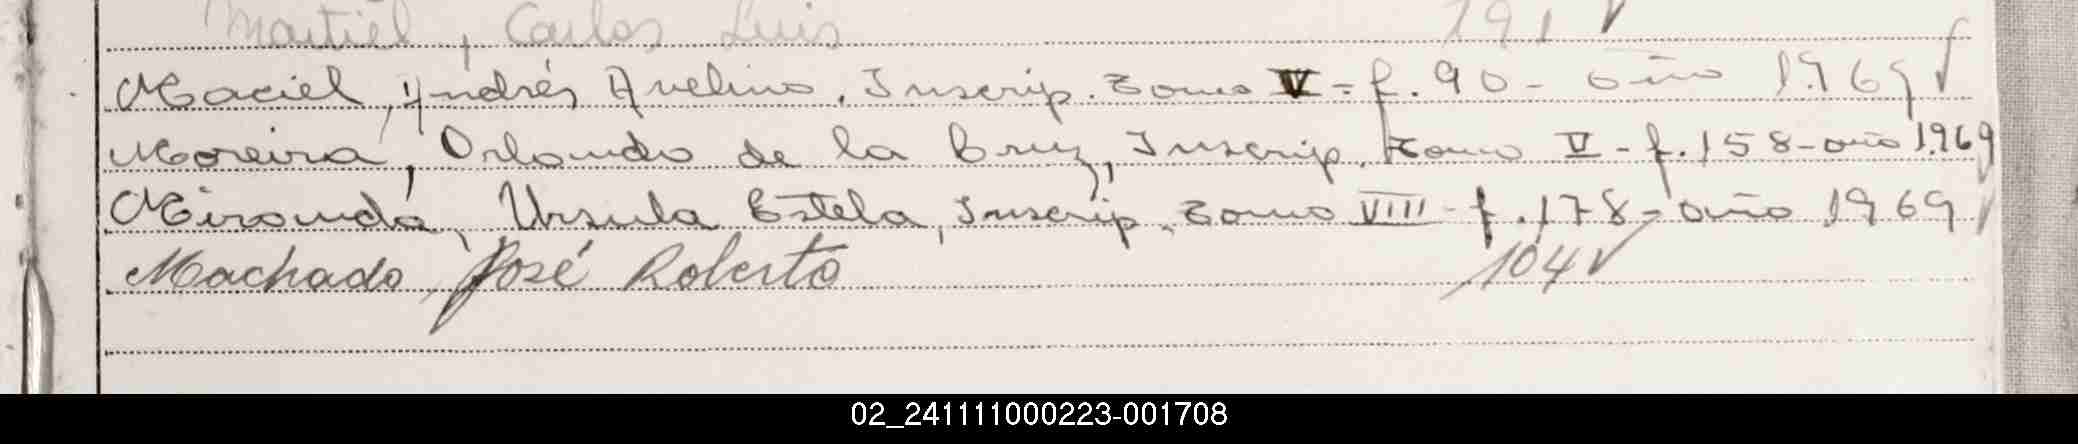 Martiel, Carlos Luis 191 √
Maciel, Andrés Avelino. Inscrip. Tomo V - f. 90 - año 1.969 √
Moreira, Orlando de la Cruz, Inscrip. Tomo V - f. 158 - año 1.969
Miranda, Ursula Estela, Inscrip. Tomo VIII - f. 178 - año 1969 √
Machado, José Roberto 104 √
02_241111000223-001708